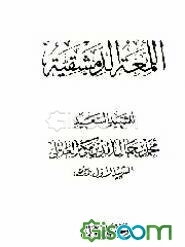 اللمعة الدمشقية
للشهيد السعيد
محمد بن جمال الدين مكي العاملي
الشهيد الاول
Gisoom
.com